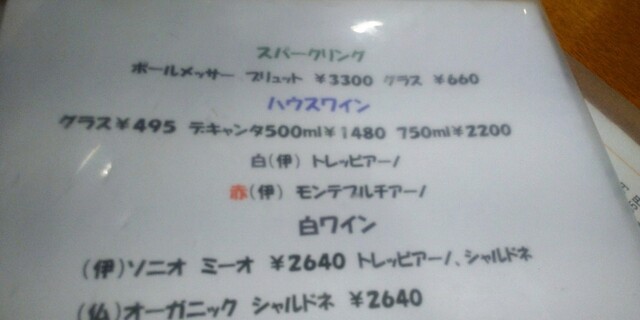 スパークリング
ポールメッサー ブリュット ¥3300 グラス ¥660
ハウスワイン
グラス¥495 デキャンタ500ml¥1480 750ml¥2200
白(伊) トレッビアーノ
赤(伊) モンテプルチアーノ
白ワイン
(伊)ソニオ ミーオ ¥2640 トレッビアーノ、シャルドネ
(仏)オーガニック シャルドネ ¥2640